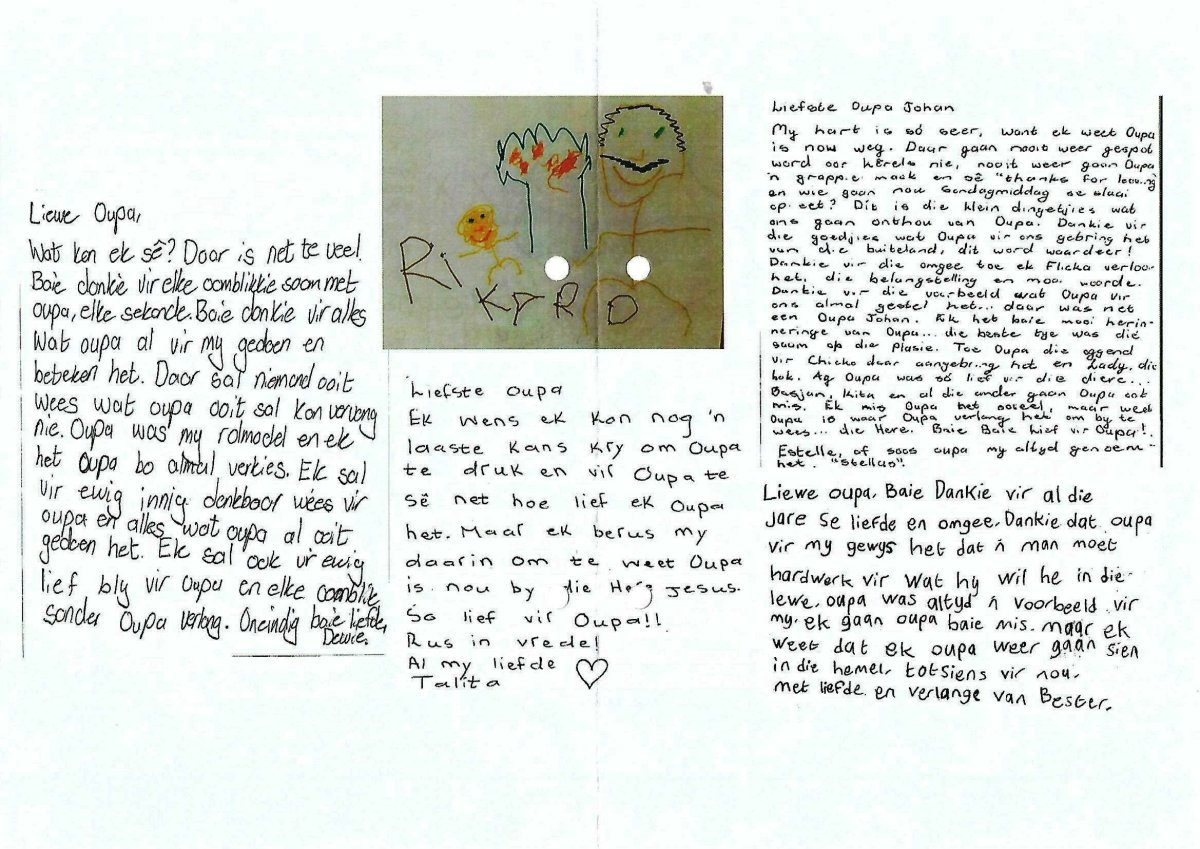 Liewe Oupa,
Wat kan ek sê? Daar is net te veel.
Baie dankie vir elke oomblikkie saam met
oupa, elke sekonde. Baie dankie vir alles
Wat oupa al vir my gedoen en
beteken het. Daar sal niemand ooit
wees wat oupa ooit sal kan vervang
nie. Oupa was my rolmodel en ek
het oupa bo almal verkies. Ek sal
vir ewig innig dankbaar wees vir
oupa en alles wat oupa al ooit
gedoen het. Ek sal ook vir ewig
lief bly vir Oupa en elke oomblik
sonder Oupa verlang. Oneindig baie liefde,
Dewie.
Ri
KARD
Liefste oupa
Ek wens ek kon nog 'n
laaste kans kry om Oupa
te druk en vir Oupa te
sê net hoe lief ek Oupa
het. Maar ek berus my
daarin om te weet Oupa
is nou by die Here Jesus.
So lief vir Oupa!!
Rus in vrede!
Al my liefde
Talita
Liefste Oupa Johan
My hart is só seer, want ek weet Oupa
is nou weg. Daar gaan nooit weer gespot
word oor kêrels nie, nooit weer gaan Oupa
'n grappie maak en sê "thanks for
en wie gaan nou Sondagmiddag se slaai
op eet? Dit is die klein dingetjies wat
ons gaan onthou van Oupa. Dankie vir
die goedjies wat Oupa vir ons gebring het
van die buiteland, dit word waardeer!
Dankie vir die omgee toe ek Flicka verloor
het, die belangstelling en mooi woorde.
Dankie vir die voorbeeld wat Oupa vir
ons almal gestel het... daar was net
een Oupa Johan. Ek het baie mooi herin-
neringe van Oupa... die beste tye was die
saam op die plasie. Toe Oupa die oggend
vir Chicko daar aangebring het en Lady, die
bok. Ag Oupa was só lief vir die diere...
Basjan, Kita en al die ander gaan Oupa ook
mis. Ek mis Oupa het maar weet
Oupa is waar Oupa verlang het om by te
wees... die Here. Baie Baie lief vir Oupa!.
Estelle, of soos oupa my altyd genoem
het. "Stellas".
Liewe oupa. Baie Dankie vir al die
jare se liefde en omgee. Dankie dat oupa
vir my gewys het dat ń man moet
hardwerk vir wat hy wil he in die
lewe. oupa was altyd ń voorbeeld vir
my. ek gaan oupa baie mis. maar ek
weet dat ek oupa weer gaan sien
in die hemel. totsiens vir nou.
met liefde en verlange van Bester.